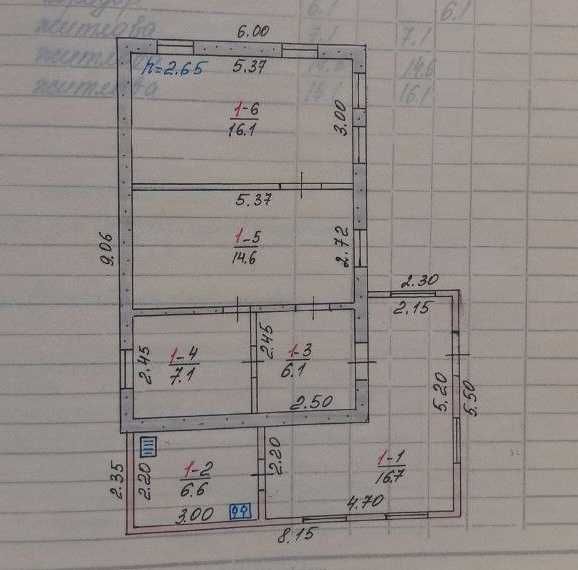 6.1 6.1
житлова 7.1 7.1
14.6
житлова 16.1
6.00
h=2.65 5.37
1-6
16.1
3.00
5.37
9.06
1-5
14.6
2.72
2.30
2.15
2.45
1-4
7.1
2.45
1-3
6.1
2.50
5.20
5.50
2.35
2.20
1-2
6.6
2.20
1-1
16.7
3.00
4.70
8.15